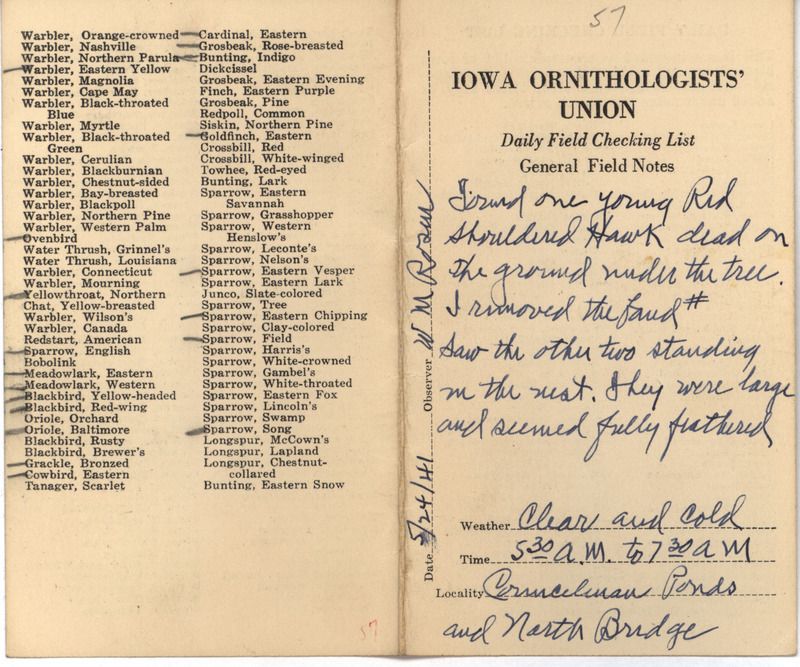 Warbler, Orange-crowned
Warbler, Nashville
Warbler, Northern Parula
Warbler, Eastern Yellow
Warbler, Magnolia
Warbler, Cape May
Warbler, Black-throated
Blue
Warbler, Myrtle
Warbler, Black-throated
Green
Warbler, Cerulian
Warbler, Blackburnian
Warbler, Chestnut-sided
Warbler, Bay-breasted
Warbler, Blackpoll
Warbler, Northern Pine
Warbler, Western Palm
Ovenbird
Water Thrush, Grinnel's
Water Thrush, Louisiana
Warbler, Connecticut
Warbler, Mourning
Yellowthroat, Northern
Chat, Yellow-breasted
Warbler, Wilson's
Warbler, Canada
Redstart, American
Sparrow, English
Bobolink
Meadowlark, Eastern
Meadowlark, Western
Blackbird, Yellow-headed
Blackbird, Red-wing
Oriole, Orchard
Oriole, Baltimore
Blackbird, Rusty
Blackbird, Brewer's
Grackle, Bronzed
Cowbird, Eastern
Tanager, Scarlet
Cardinal, Eastern
Grosbeak, Rose-breasted
Bunting, Indigo
Dickcissel
Grosbeak, Eastern Evening
Finch, Eastern Purple
Grosbeak, Pine
Redpoll, Common
Siskin, Northern Pine
Goldfinch, Eastern
Crossbill, Red
Crossbill, White-winged
Towhee, Red-eyed
Bunting, Lark
Sparrow, Eastern
Savannah
Sparrow, Grasshopper
Sparrow, Western
Henslow's
Sparrow, Leconte's
Sparrow, Nelson's
Sparrow, Eastern Vesper
Sparrow, Eastern Lark
Junco, Slate-colored
Sparrow, Tree
Sparrow, Eastern Chipping
Sparrow, Clay-colored
Sparrow, Field
Sparrow, Harris's
Sparrow, White-crowned
Sparrow, Gambel's
Sparrow, White-throated
Sparrow, Eastern Fox
Sparrow, Lincoln's
Sparrow, Swamp
Sparrow, Song
Longspur, McCown's
Longspur, Lapland
Longspur, Chestnut-
collared
Bunting, Eastern Snow
57
57
IOWA ORNITHOLOGISTS'
UNION
Daily Field Checking List
General Field Notes
Found one young Red
Shouldered Hawk dead on
the ground under the tree.
I removed the band #
Saw the other two standing
in the nest. They were large
and seemed fully feathered
Weather Clear and Cold
Time 5 30 A.M. to 7 30 A M
Locality Councilman Ponds
and North Bridge
Date 5/24/41 Observer W M Rosen